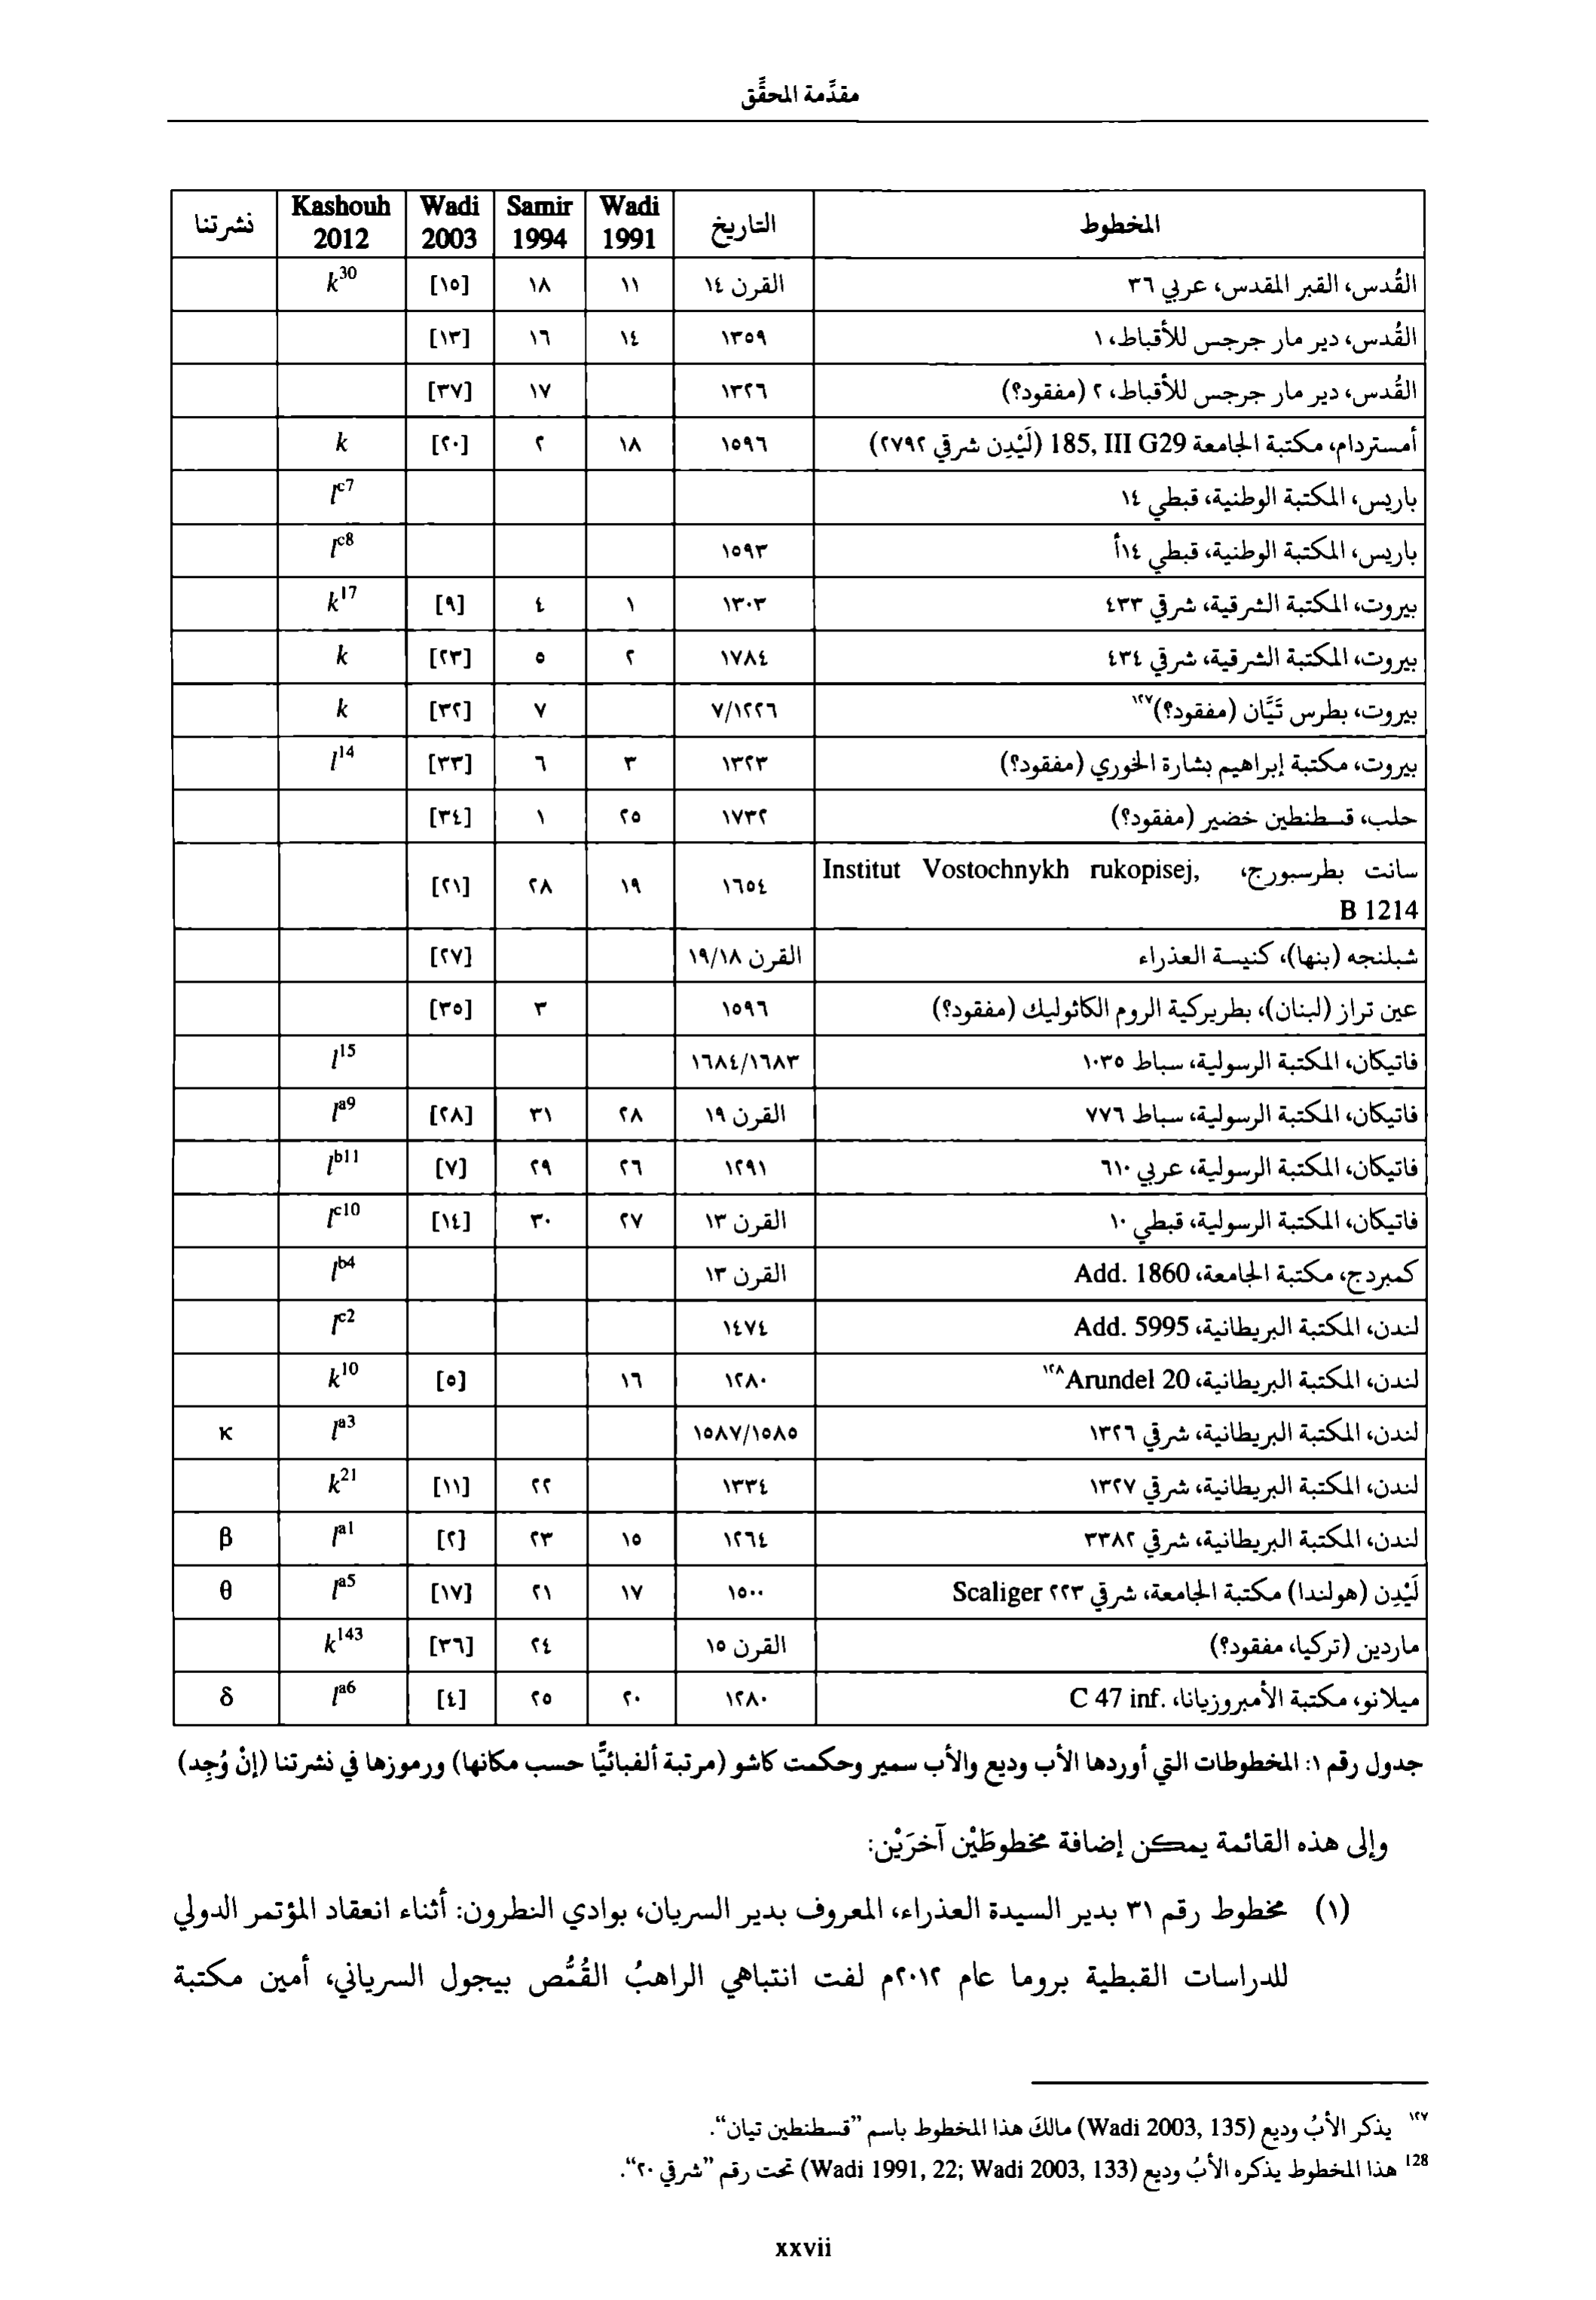 مقدَّمة المحقَّق
المخطوط | التاريخ | Wadi 1991 | Samir 1994 | Wadi 2003 | Kashouh 2012 | نشرتنا
القُدس، القبر المقدس، عربي ٣٦ | القرن ١٤ | ١١ | ١٨ | [١٥] | k30 |
القُدس، دير مار جرجس للأقباط، ١ | ١٣٥٩ | ١٤ | ١٦ | [١٣] | |
القُدس، دير مار جرجس للأقباط، ٢ (مفقود؟) | ١٣٢٦ | | ١٧ | [٣٧] | |
أمستردام، مكتبة الجامعة 185, III G29 (لَيْدِن شرقي ٢٧٩٢) | ١٥٩٦ | ١٨ | ٢ | [٢٠] | k |
باريس، المكتبة الوطنية، قبطي ١٤ | | | | | lc7 |
باريس، المكتبة الوطنية، قبطي ١٤أ | ١٥٩٣ | | | | lc8 |
بيروت، المكتبة الشرقية، شرقي ٤٣٣ | ١٣٠٣ | ١ | ٤ | [٩] | k17 |
بيروت، المكتبة الشرقية، شرقي ٤٣٤ | ١٧٨٤ | ٢ | ٥ | [٢٣] | k |
بيروت، بطرس تَيَّان (مفقود؟)١٢٧ | ٧/١٢٢٦ | | ٧ | [٣٢] | k |
بيروت، مكتبة إبراهيم بشارة الخوري (مفقود؟) | ١٣٢٣ | ٣ | ٦ | [٣٣] | l14 |
حلب، قسطنطين خضير (مفقود؟) | ١٧٣٢ | ٢٥ | ١ | [٣٤] | |
سانت بطرسبورج، Institut Vostochnykh rukopisej,
B 1214 | ١٦٥٤ | ١٩ | ٢٨ | [٢١] | |
شبلنجه (بنها)، كنيسة العذراء | القرن ١٩/١٨ | | | [٢٧] | |
عين تراز (لبنان)، بطريركية الروم الكاثوليك (مفقود؟) | ١٥٩٦ | | ٣ | [٣٥] | |
فاتيكان، المكتبة الرسولية، سباط ١٠٣٥ | ١٦٨٤/١٦٨٣ | | | | l15 |
فاتيكان، المكتبة الرسولية، سباط ٧٧٦ | القرن ١٩ | ٢٨ | ٣١ | [٢٨] | la9 |
فاتيكان، المكتبة الرسولية، عربي ٦١٠ | ١٢٩١ | ٢٦ | ٢٩ | [٧] | lb11 |
فاتيكان، المكتبة الرسولية، قبطي ١٠ | القرن ١٣ | ٢٧ | ٣٠ | [١٤] | lc10 |
كمبردج، مكتبة الجامعة، Add. 1860 | القرن ١٣ | | | | lb4 |
لندن، المكتبة البريطانية، Add. 5995 | ١٤٧٤ | | | | lc2 |
لندن، المكتبة البريطانية، Arundel 20١٢٨ | ١٢٨٠ | ١٦ | | [٥] | k10 |
لندن، المكتبة البريطانية، شرقي ١٣٢٦ | ١٥٨٧/١٥٨٥ | | | | la3 | κ
لندن، المكتبة البريطانية، شرقي ١٣٢٧ | ١٣٣٤ | | ٢٢ | [١١] | k21 |
لندن، المكتبة البريطانية، شرقي ٣٣٨٢ | ١٢٦٤ | ١٥ | ٢٣ | [٢] | la1 | β
لَيْدِن (هولندا) مكتبة الجامعة، شرقي ٢٢٣ Scaliger | ١٥٠٠ | ١٧ | ٢١ | [١٧] | la5 | θ
ماردين (تركيا، مفقود؟) | القرن ١٥ | | ٢٤ | [٣٦] | k143 |
ميلانو، مكتبة الأمبروزيانا، C 47 inf. | ١٢٨٠ | ٢٠ | ٢٥ | [٤] | la6 | δ
جدول رقم ١: المخطوطات التي أوردها الأب وديع والأب سمير وحكمت كاشو (مرتبة ألفبائيًّا حسب مكانها) ورموزها في نشرتنا (إنْ وُجِد)
وإلى هذه القائمة يمكن إضافة مخطوطَيْن آخرَيْن:
(١) مخطوط رقم ٣١ بدير السيدة العذراء، المعروف بدير السريان، بوادي النطرون: أثناء انعقاد المؤتمر الدولي
للدراسات القبطية بروما عام ٢٠١٢م لفت انتباهي الراهبُ القُمُّص بيجول السرياني، أمين مكتبة
١٢٧ يذكر الأبُ وديع (Wadi 2003, 135) مالكَ هذا المخطوط باسم ”قسطنطين تيان“.
128 هذا المخطوط يذكره الأبُ وديع (Wadi 1991, 22; Wadi 2003, 133) تحت رقم ”شرقي ٢٠“.
xxvii